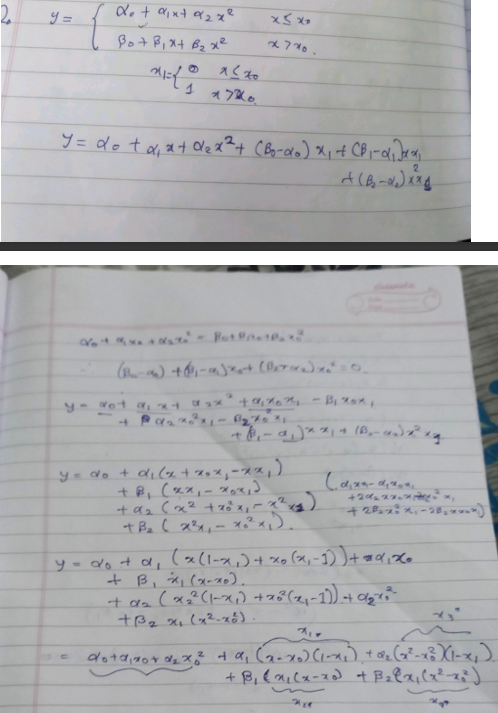 2.
y = { α₀ + α₁x + α₂x²   x ≤ x₀
β₀ + β₁x + β₂x²   x > x₀.
x₁ = { 0   x ≤ x₀
1   x > x₀.
y = α₀ + α₁x + α₂x² + (β₀-α₀) x₁ + (β₁-α₁)xx₁
+ (β₂-α₂) x²x₁
α₀ + α₁x₀ + α₂x₀² = β₀ + β₁x₀ + β₂x₀²
(β₀-α₀) + (β₁-α₁)x₀ + (β₂-α₂) x₀² = 0.
y = α₀ + α₁x + α₂x² + α₁x₀x₁ - β₁x₀x₁
+ α₂x₀²x₁ - β₂x₀²x₁
+ (β₁-α₁) xx₁ + (β₂-α₂) x²x₁
y = α₀ + α₁(x + x₀x₁ - xx₁)
+ β₁ (xx₁ - x₀x₁)
+ α₂ (x² + x₀²x₁ - x²x₁)
+ β₂ (x²x₁ - x₀²x₁).
y = α₀ + α₁ (x(1-x₁) + x₀(x₁-1)) + α₁x₀
+ β₁ x₁(x-x₀).
+ α₂ (x²(1-x₁) + x₀²(x₁-1)) + α₂x₀²
+ β₂ x₁(x²-x₀²).
= α₀+α₁x₀+α₂x₀² + α₁(x-x₀)(1-x₁) + α₂(x²-x₀²)(1-x₁)
+ β₁(x₁(x-x₀) + β₂(x₁(x²-x₀²)